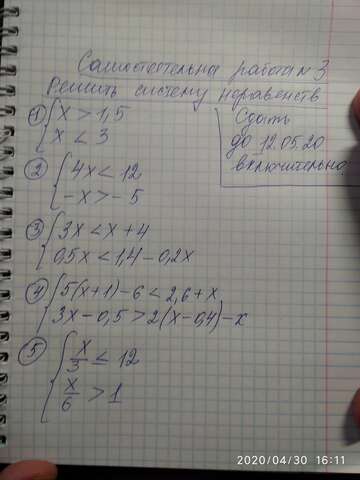 Самостоятельна работа № 3
Решить систему неравенств
Сдать
до 12.05.20
включительно.
① { x > 1,5
x < 3
② { 4x < 12
-x > -5
③ { 3x < x + 4
0,5x < 1,4 - 0,2x
④ { 5(x+1) - 6 < 2,6 + x
3x - 0,5 > 2(x - 0,4) - x
⑤ { x/3 ≤ 12
x/6 > 1
2020/04/30 16:11